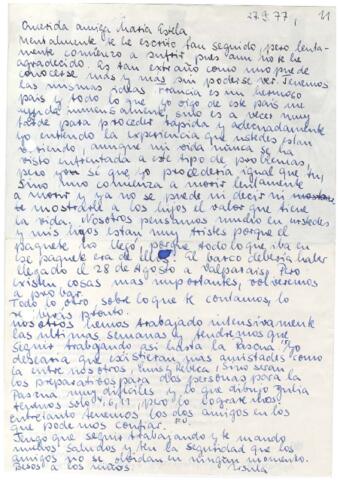 27.9.77, 11
Querida amiga María Estela,
mentalmente te he escrito tan seguido, pero lenta-
mente comienzo a sufrir pues aun no te he
agradecido. Es tan extraño como uno puede
conocerse más y más sin poderse ver. Tenemos
las mismas ideas. Francia es un hermoso
país y todo lo que yo oigo de este país me
ayuda inmensamente, sino es a veces muy
tarde para proceder rápida y adecuadamente
Yo entiendo la experiencia que ustedes están
viviendo, aunque mi vida nunca se ha
visto enfrentada a este tipo de problemas,
pero yo sé que yo procedería igual que tú,
Sino uno comienza a morir lentamente
a morir y ya no se puede ni decir ni
mostrarle a los hijos el valor que tiene
la vida. Nosotros pensamos mucho en ustedes
y mis hijos están muy tristes porque el
paquete no llegó, porque todo lo que iba en
ese paquete era de ellos. El barco debería haber
llegado el 28 de Agosto a Valparaíso, Pero
existen cosas mas importantes, volveremos
a probar.
Todo lo otro sobre lo que te contamos, lo
pronto.
nosotros hemos trabajado intensivamente
las últimas semanas y tendremos que
seguir trabajando así hasta la Pascua. Yo
desearía que existieran mas amistades como
la entre nosotros, sino serán
los preparativos para dos personas para la
Pascua muy difíciles y lo que dibujo Julia
tenemos solo 11, pero lo lograremos
entretanto tenemos los dos amigos en los
que podemos confiar.
Tengo que seguir trabajando y te mando
muchos saludos y ten la seguridad que los
amigos no se olvidan en ningún momento.
Besos a los niños. Ursula